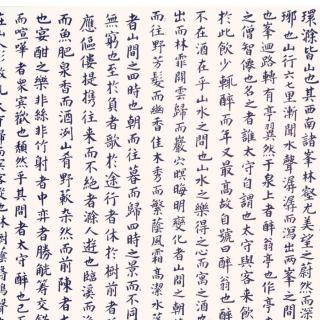 環滁皆山也其西南諸峯林壑尤美望之蔚然而深
瑯也山行六七里漸聞水聲潺潺而瀉出兩峯之間
也峯迴路轉有亭翼然于泉上者醉翁亭也作亭
之僧智僊也名之者誰太守自謂也太守與客來飲
於此飲少輒醉而年又最高故自號曰醉翁也醉
不在酒在乎山水之間也山水之樂得之心而寓之酒
出而林霏開雲歸而巖穴暝晦明變化者山間之朝
而往野芳發而幽香佳木秀而繁陰風霜高潔水落
者山間之四時也朝而往暮而歸四時之景而不同
無窮也至於負者歌於途行者休於樹前者
應傴僂提携往來而不絕者滁人遊也臨溪而漁
而魚肥泉香而酒洌山肴野蔌雜然而前陳者太
也宴酣之樂非絲非竹射者中弈者勝觥籌交錯
而諠譁者衆賓懽也頹然乎其間者太守醉也已